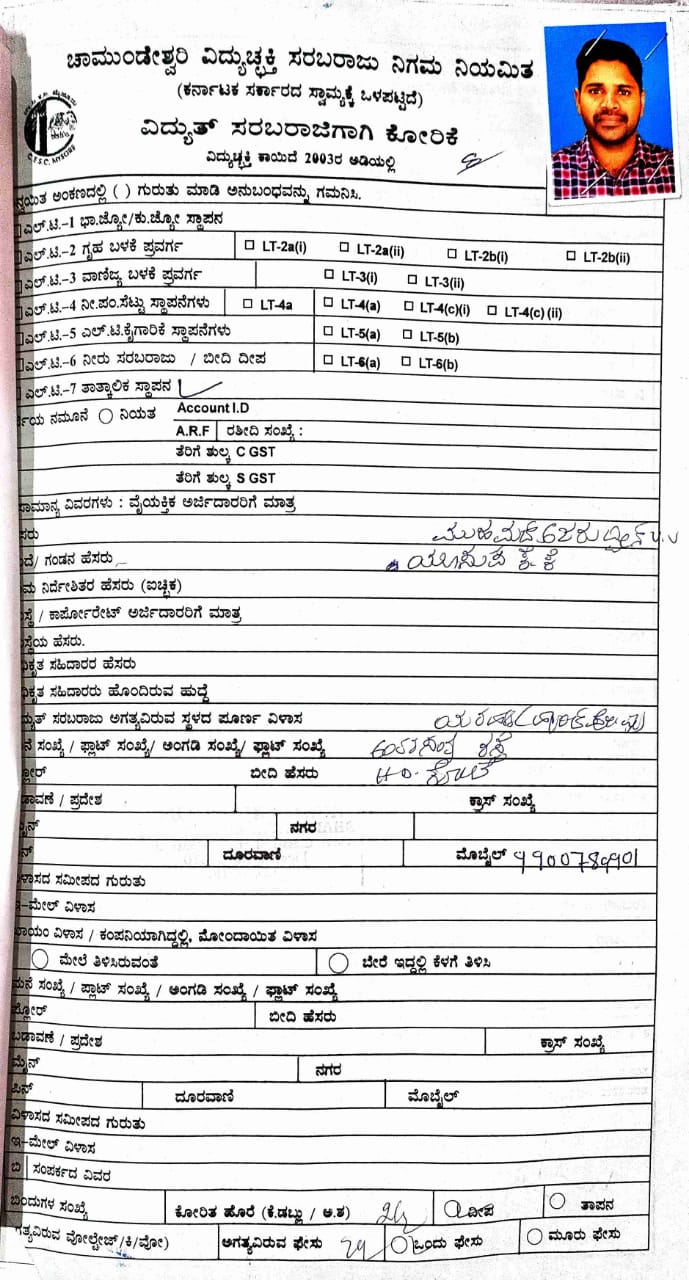 ಚಾಮುಂಡೇಶ್ವರಿ ವಿದ್ಯುಚ್ಛಕ್ತಿ ಸರಬರಾಜು ನಿಗಮ ನಿಯಮಿತ
(ಕರ್ನಾಟಕ ಸರ್ಕಾರದ ಸ್ವಾಮ್ಯಕ್ಕೆ ಒಳಪಟ್ಟಿದೆ)
ವಿದ್ಯುತ್ ಸರಬರಾಜಿಗಾಗಿ ಕೋರಿಕೆ
ವಿದ್ಯುಚ್ಛಕ್ತಿ ಕಾಯಿದೆ 2003ರ ಅಡಿಯಲ್ಲಿ
C.E.S.C, MYSORE
ಅಂಕಣದಲ್ಲಿ ( ) ಗುರುತು ಮಾಡಿ ಅನುಬಂಧವನ್ನು ಗಮನಿಸಿ.
ಎಲ್.ಟಿ.-1 ಭಾ.ಜ್ಯೋ/ಕು.ಜ್ಯೋ ಸ್ಥಾಪನ
ಎಲ್.ಟಿ.-2 ಗೃಹ ಬಳಕೆ ಪ್ರವರ್ಗ LT-2a(i) LT-2a(ii) LT-2b(i) LT-2b(ii)
ಎಲ್.ಟಿ.-3 ವಾಣಿಜ್ಯ ಬಳಕೆ ಪ್ರವರ್ಗ LT-3(i) LT-3(ii)
ಎಲ್.ಟಿ.-4 ನೀ.ಪಂ.ಸೆಟ್ಟು ಸ್ಥಾಪನೆಗಳು LT-4a LT-4(a) LT-4(c)(i) LT-4(c) (ii)
ಎಲ್.ಟಿ.-5 ಎಲ್.ಟಿ.ಕೈಗಾರಿಕೆ ಸ್ಥಾಪನೆಗಳು LT-5(a) LT-5(b)
ಎಲ್.ಟಿ.-6 ನೀರು ಸರಬರಾಜು / ಬೀದಿ ದೀಪ LT-6(a) LT-6(b)
ಎಲ್.ಟಿ.-7 ತಾತ್ಕಾಲಿಕ ಸ್ಥಾಪನ
ನಮೂನೆ ನಿಯತ Account I.D
A.R.F ರಶೀದಿ ಸಂಖ್ಯೆ :
ತೆರಿಗೆ ಶುಲ್ಕ C GST
ತೆರಿಗೆ ಶುಲ್ಕ S GST
ವಿವರಗಳು : ವೈಯಕ್ತಿಕ ಅರ್ಜಿದಾರರಿಗೆ ಮಾತ್ರ
ಗಂಡನ ಹೆಸರು
ನಿರ್ದೇಶಿತರ ಹೆಸರು (ಐಚ್ಛಿಕ)
/ ಕಾರ್ಪೋರೇಟ್ ಅರ್ಜಿದಾರರಿಗೆ ಮಾತ್ರ
ಹೆಸರು.
ಸಹಿದಾರರ ಹೆಸರು
ಸಹಿದಾರರು ಹೊಂದಿರುವ ಹುದ್ದೆ
ಸರಬರಾಜು ಅಗತ್ಯವಿರುವ ಸ್ಥಳದ ಪೂರ್ಣ ವಿಳಾಸ
ಸಂಖ್ಯೆ / ಫ್ಲಾಟ್ ಸಂಖ್ಯೆ/ ಅಂಗಡಿ ಸಂಖ್ಯೆ/ ಫ್ಲಾಟ್ ಸಂಖ್ಯೆ
ಬೀದಿ ಹೆಸರು H.D. ಕೋಟೆ
/ ಪ್ರದೇಶ ಕ್ರಾಸ್ ಸಂಖ್ಯೆ
ನಗರ
ದೂರವಾಣಿ ಮೊಬೈಲ್
ಸಮೀಪದ ಗುರುತು
ಇ-ಮೇಲ್ ವಿಳಾಸ
ವಿಳಾಸ / ಕಂಪನಿಯಾಗಿದ್ದಲ್ಲಿ, ಮೋಂದಾಯಿತ ವಿಳಾಸ
ಮೇಲೆ ತಿಳಿಸಿರುವಂತೆ ಬೇರೆ ಇದ್ದಲ್ಲಿ ಕೆಳಗೆ ತಿಳಿಸಿ
ಮನೆ ಸಂಖ್ಯೆ / ಪ್ಲಾಟ್ ಸಂಖ್ಯೆ / ಅಂಗಡಿ ಸಂಖ್ಯೆ / ಫ್ಲಾಟ್ ಸಂಖ್ಯೆ
ಫ್ಲೋರ್ ಬೀದಿ ಹೆಸರು
ಬಡಾವಣೆ / ಪ್ರದೇಶ ಕ್ರಾಸ್ ಸಂಖ್ಯೆ
ಮೈನ್ ನಗರ
ಪಿನ್ ದೂರವಾಣಿ ಮೊಬೈಲ್
ವಿಳಾಸದ ಸಮೀಪದ ಗುರುತು
ಇ-ಮೇಲ್ ವಿಳಾಸ
ಬಿ ಸಂಪರ್ಕದ ವಿವರ
ಬಿಂದುಗಳ ಸಂಖ್ಯೆ ಕೋರಿತ ಹೊರೆ (ಕೆ.ಡಬ್ಲು / ಅ.ಶ) ದೀಪ ತಾಪನ
ಅಗತ್ಯವಿರುವ ಫೇಸು ಒಂದು ಫೇಸು ಮೂರು ಫೇಸು